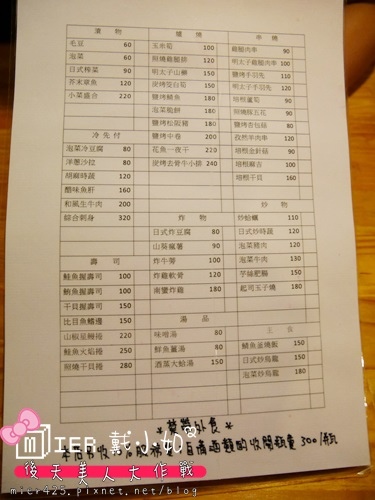 漬物
毛豆 60
泡菜 60
日式榨菜 90
芥末章魚 120
小菜盛合 220
冷先付
泡菜冷豆腐 80
洋蔥沙拉 80
胡麻時蔬 120
醋味魚肝 160
和風生牛肉 200
綜合刺身 320
壽司
鮭魚握壽司 100
鮪魚握壽司 100
干貝握壽司 150
比目魚鰭邊 150
山椒星鰻捲 220
鮭魚火焰捲 250
照燒干貝捲 280
爐燒
玉市筍 100
照燒雞腿排 120
明太子山柳 150
炭烤筊白筍 150
鹽烤鯖魚 180
泡菜脆餅 180
鹽烤松阪豬 180
鹽烤中卷 200
花魚一夜干 220
炭烤去骨牛小排 240
炸物
日式炸豆腐 80
山葵瘋薯 90
炸牛蒡 100
炸雞軟骨 120
南蠻炸雞 180
湯品
味噌湯 80
鮮魚薑湯 80
酒蒸大蛤湯 150
串燒
雞腿肉串 90
鹽烤手羽先 110
明太子手羽先 120
培根蘆筍 100
照燒豚五花 90
鹽烤杏包菇 80
孜然羊肉串 100
培根金針菇 90
培根麻吉 100
培根干貝 160
炒物
炒蛤蠣 110
日式炒時蔬 120
泡菜豬肉 120
泡菜牛肉 130
芋絲肥腸 150
起司玉子燒 180
主食
鯖魚釜燒飯 150
日式炒烏龍 150
泡菜炒烏龍 180
*禁帶外食*
本店另收10%服務費 自備酒類酌收開瓶費300/瓶
MIER 戴小如
後天美人大作戰
mier425.pixnet.net/blog